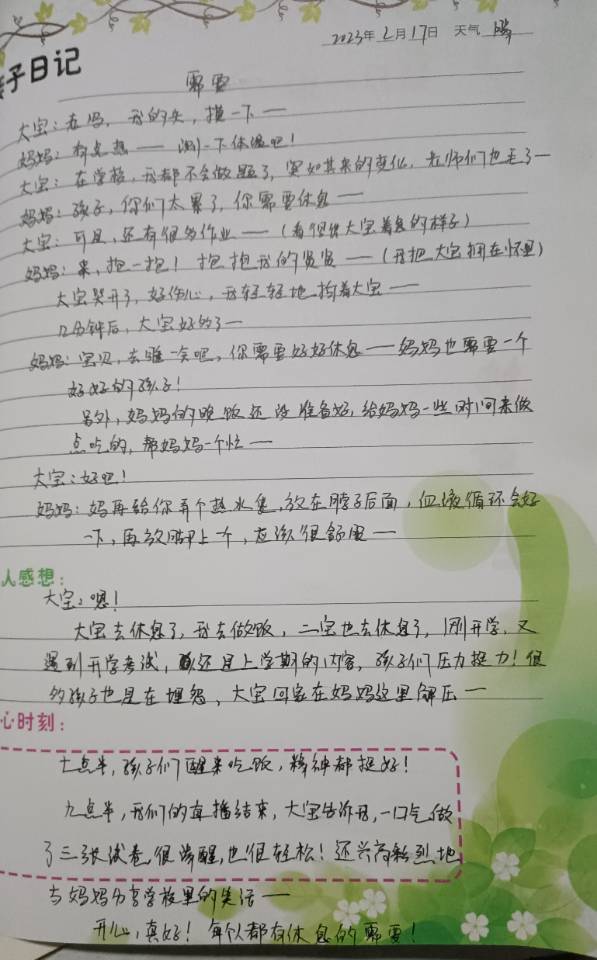 2023年2月17日 天气 晴
子日记
需要
大宝:老妈,我的头,摸一下——
妈妈:有点热——测一下体温吧!
大宝:在学校,我都不会做题了,突如其来的变化,老师们也走了—
妈妈:孩子,你们太累了,你需要休息——
大宝:可是,还有很多作业——(看似大宝着急的样子)
妈妈:来,抱一抱!抱抱我的宝宝——(我把大宝拥在怀里)
大宝哭开了,好伤心,我轻轻地抱着大宝——
几分钟后,大宝好多了—
妈妈:宝贝,去睡一会吧,你需要好好休息——妈妈也需要一个
好好的孩子!
另外,妈妈的晚饭还没准备好,给妈妈一些时间来做
点吃的,帮妈妈一个忙——
大宝:好吧!
妈妈:妈再给你弄个热水袋,放在脖子后面,血液循环会好
一下,再放脚上一个,应该很舒服——
人感想:
大宝:嗯!
大宝去休息了,我去做饭,二宝也去休息了,刚开学,又
遇到开学考试,还是上学期的内容,孩子们压力挺大!很
多孩子也是在埋怨,大宝回家在妈妈这里解压—
心时刻:
七点半,孩子们醒来吃饭,精神都挺好!
九点半,我们的直播结束,大宝告诉我,一口气做
了三张试卷,很清醒,也很轻松!还兴高彩烈地
与妈妈分享学校里的生活——
开心,真好!每个人都有休息的需要!